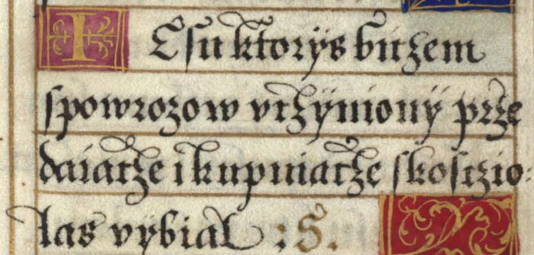 IESu ktorys biczem
spowrozow vczÿnionÿ prze
daiacze ikupuiacze skosczio-
las vÿbial : S.